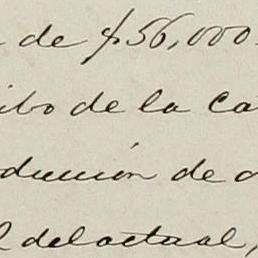 de $56,000
ibo de la ca
ducción de
del actual,